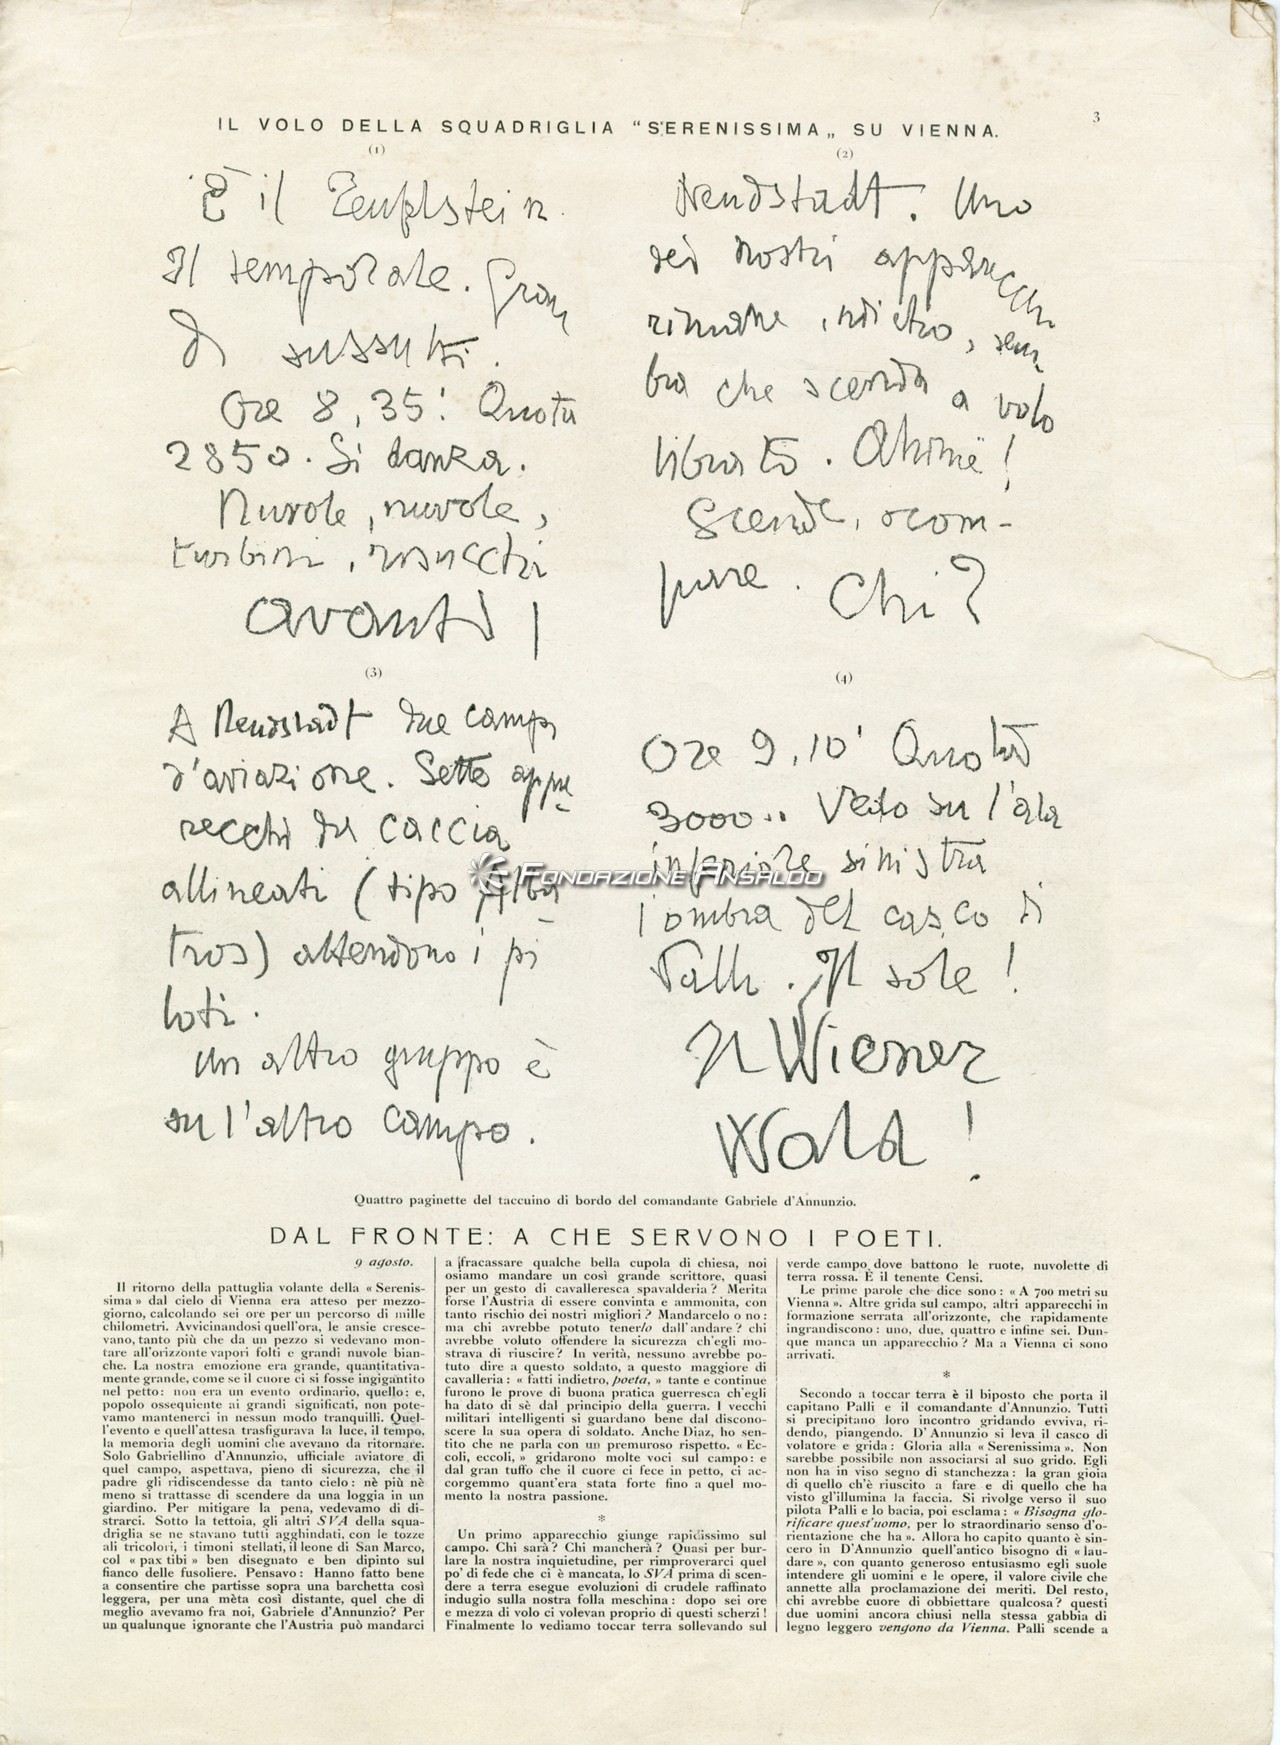 IL VOLO DELLA SQUADRIGLIA "SERENISSIMA„ SU VIENNA.
3
(1)
È il Zeuplstein.
Il temporale. Gran
di sussulti.
Ore 8,35'. Quota
2850. Si danza.
Nuvole, nuvole,
turbini, risucchi
avanti!
(2)
Neudstadt. Uno
dei nostri apparecchi
rimane indietro, sem-
bra che scenda a volo
librato. Ahimè!
Scende, scom-
pare. Chi?
(3)
A Neudstadt due campi
d'aviazione. Sette appa-
recchi da caccia
allineati (tipo Alba
tros) attendono i pi
loti.
Un altro gruppo è
su l'altro campo.
(4)
Ore 9,10' Quota
3000.. Vedo su l'ala
inferiore sinistra
l'ombra del casco di
Palli. Il sole!
Il Wiener
Wald!
FONDAZIONE ANSALDO
Quattro paginette del taccuino di bordo del comandante Gabriele d'Annunzio.
DAL FRONTE: A CHE SERVONO I POETI.
9 agosto.
Il ritorno della pattuglia volante della « Serenis-
sima » dal cielo di Vienna era atteso per mezzo-
giorno, calcolando sei ore per un percorso di mille
chilometri. Avvicinandosi quell'ora, le ansie cresce-
vano, tanto più che da un pezzo si vedevano mon-
tare all'orizzonte vapori folti e grandi nuvole bian-
che. La nostra emozione era grande, quantitativa-
mente grande, come se il cuore ci si fosse ingigantito
nel petto: non era un evento ordinario, quello: e,
popolo ossequiente ai grandi significati, non pote-
vamo mantenerci in nessun modo tranquilli. Quel-
l'evento e quell'attesa trasfigurava la luce, il tempo,
la memoria degli uomini che avevano da ritornare.
Solo Gabriellino d'Annunzio, ufficiale aviatore di
quel campo, aspettava, pieno di sicurezza, che il
padre gli ridiscendesse da tanto cielo: nè più nè
meno si trattasse di scendere da una loggia in un
giardino. Per mitigare la pena, vedevamo di di-
strarci. Sotto la tettoia, gli altri SVA della squa-
driglia se ne stavano tutti agghindati, con le tozze
ali tricolori, i timoni stellati, il leone di San Marco,
col « pax tibi » ben disegnato e ben dipinto sul
fianco delle fusoliere. Pensavo: Hanno fatto bene
a consentire che partisse sopra una barchetta così
leggera, per una mèta così distante, quel che di
meglio avevamo fra noi, Gabriele d'Annunzio? Per
un qualunque ignorante che l'Austria può mandarci
a fracassare qualche bella cupola di chiesa, noi
osiamo mandare un così grande scrittore, quasi
per un gesto di cavalleresca spavalderia? Merita
forse l'Austria di essere convinta e ammonita, con
tanto rischio dei nostri migliori? Mandarcelo o no:
ma chi avrebbe potuto tenerlo dall'andare? chi
avrebbe voluto offendere la sicurezza ch'egli mo-
strava di riuscire? In verità, nessuno avrebbe po-
tuto dire a questo soldato, a questo maggiore di
cavalleria: « fatti indietro, poeta, » tante e continue
furono le prove di buona pratica guerresca ch'egli
ha dato di sè dal principio della guerra. I vecchi
militari intelligenti si guardano bene dal discono-
scere la sua opera di soldato. Anche Diaz, ho sen-
tito che ne parla con un premuroso rispetto. « Ec-
coli, eccoli, » gridarono molte voci sul campo: e
dal gran tuffo che il cuore ci fece in petto, ci ac-
corgemmo quant'era stata forte fino a quel mo-
mento la nostra passione.
*
Un primo apparecchio giunge rapidissimo sul
campo. Chi sarà? Chi mancherà? Quasi per bur-
lare la nostra inquietudine, per rimproverarci quel
po' di fede che ci è mancata, lo SVA prima di scen-
dere a terra esegue evoluzioni di crudele raffinato
indugio sulla nostra folla meschina: dopo sei ore
e mezza di volo ci volevan proprio di questi scherzi!
Finalmente lo vediamo toccar terra sollevando sul
verde campo, dove battono le ruote, nuvolette di
terra rossa. È il tenente Censi.
Le prime parole che dice sono: « A 700 metri su
Vienna ». Altre grida sul campo, altri apparecchi in
formazione serrata all'orizzonte, che rapidamente
ingrandiscono: uno, due, quattro e infine sei. Dun-
que manca un apparecchio? Ma a Vienna ci sono
arrivati.
*
Secondo a toccar terra è il biposto che porta il
capitano Palli e il comandante d'Annunzio. Tutti
si precipitano loro incontro gridando evviva, ri-
dendo, piangendo. D'Annunzio si leva il casco di
volatore e grida: Gloria alla « Serenissima ». Non
sarebbe possibile non associarsi al suo grido. Egli
non ha in viso segno di stanchezza: la gran gioia
di quello ch'è riuscito a fare e di quello che ha
visto gl'illumina la faccia. Si rivolge verso il suo
pilota Palli e lo bacia, poi esclama: « Bisogna glo-
rificare quest'uomo, per lo straordinario senso d'o-
rientazione che ha ». Allora ho capito quanto è sin-
cero in D'Annunzio quell'antico bisogno di « lau-
dare », con quanto generoso entusiasmo egli suole
intendere gli uomini e le opere, il valore civile che
annette alla proclamazione dei meriti. Del resto,
chi avrebbe cuore di obbiettare qualcosa? questi
due uomini ancora chiusi nella stessa gabbia di
legno leggero vengono da Vienna. Palli scende a